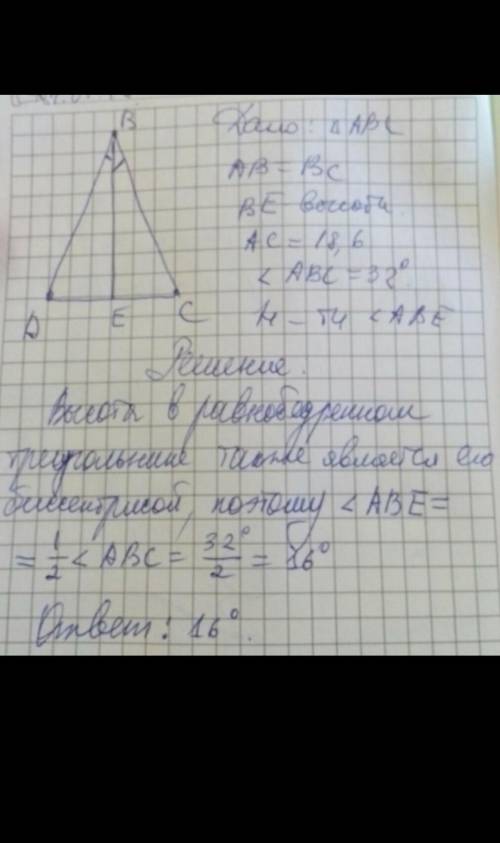 B
Дано: △ ABC
AB = BC
BE высота
AC = 18,6
< ABC = 32°
Н-ти < ABE
D E C
Решение.
Высота в равнобедренном
треугольнике также является его
биссектрисой, поэтому < ABE =
= 1/2 < ABC = 32°/2 = 16°
Ответ: 16°.